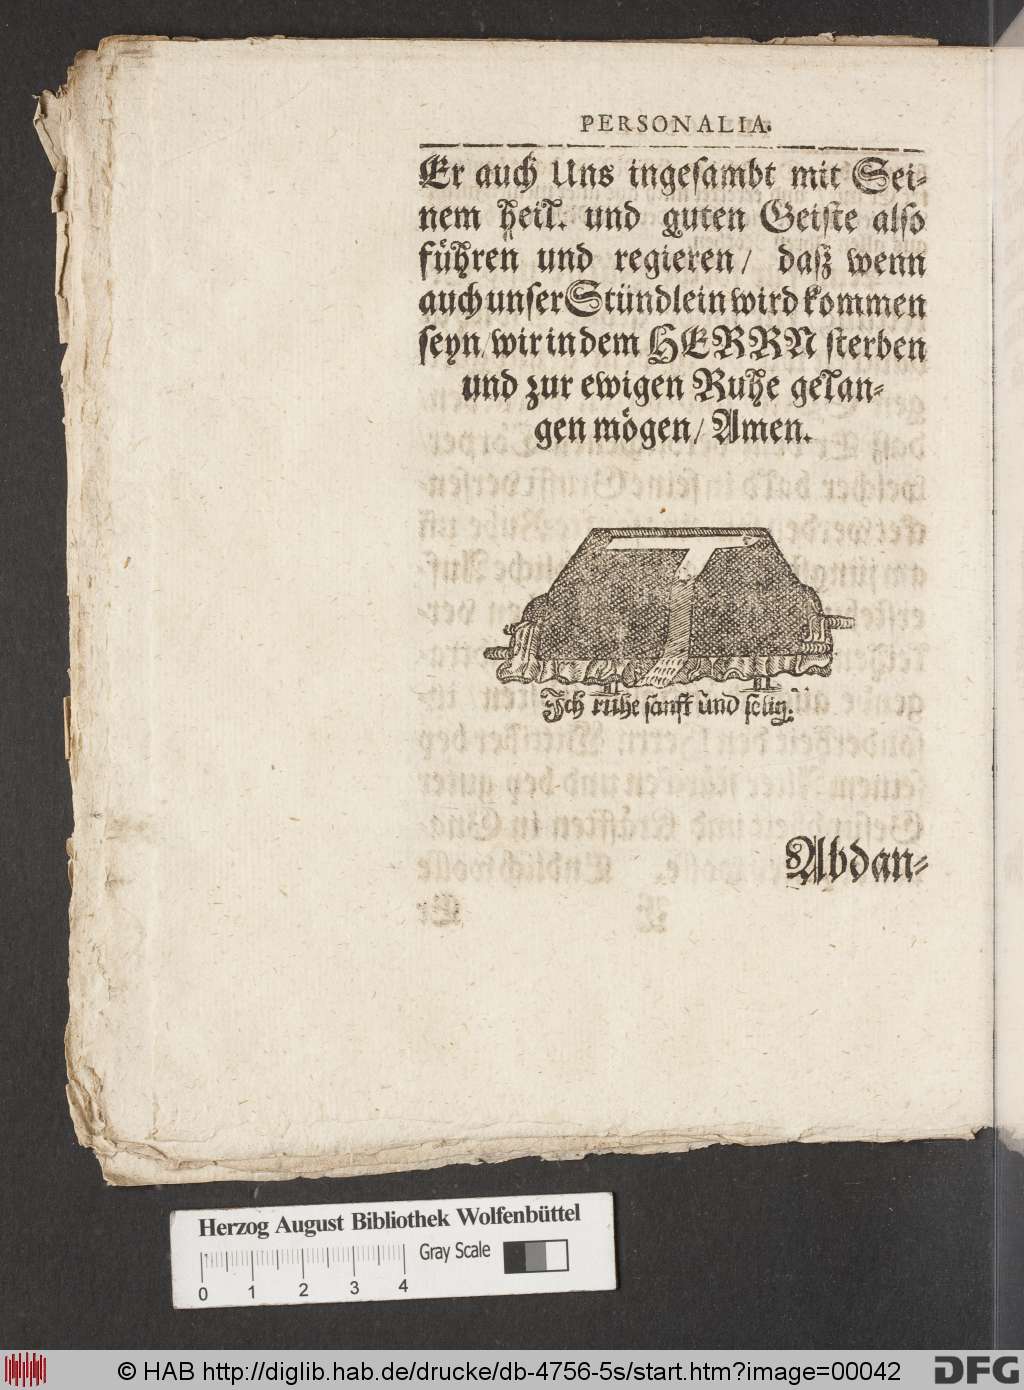 PERSONALIA.
Er auch Uns ingesambt mit Sei-
nem heil. und guten Geiste also
führen und regieren/ daß wenn
auch unser Stündlein wird kommen
seyn/ wir in dem HERRN sterben
und zur ewigen Ruhe gelan-
gen mögen/ Amen.
Ich ruhe sanft und selig.
Abdan-
Herzog August Bibliothek Wolfenbüttel
Gray Scale
0 1 2 3 4
© HAB http://diglib.hab.de/drucke/db-4756-5s/start.htm?image=00042
DFG